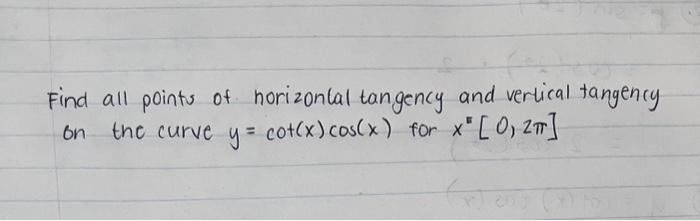 Find all points of horizontal tangency and vertical tangency
on the curve y = cot(x)cos(x) for x=[0,2π]